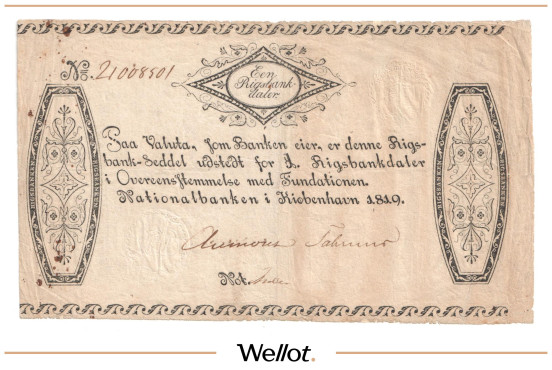 No. 21008501
Een
Rigsbank-
daler.
Paa Valuta, som Banken eier, er denne Rigs-
bank-Seddel udstedt for 1. Rigsbankdaler
i Overeensstemmelse med Fundationen.
Nationalbanken i Kiøbenhavn 1819.
Not.
RIGSBANKD
RIGSBANKD
Wellot.